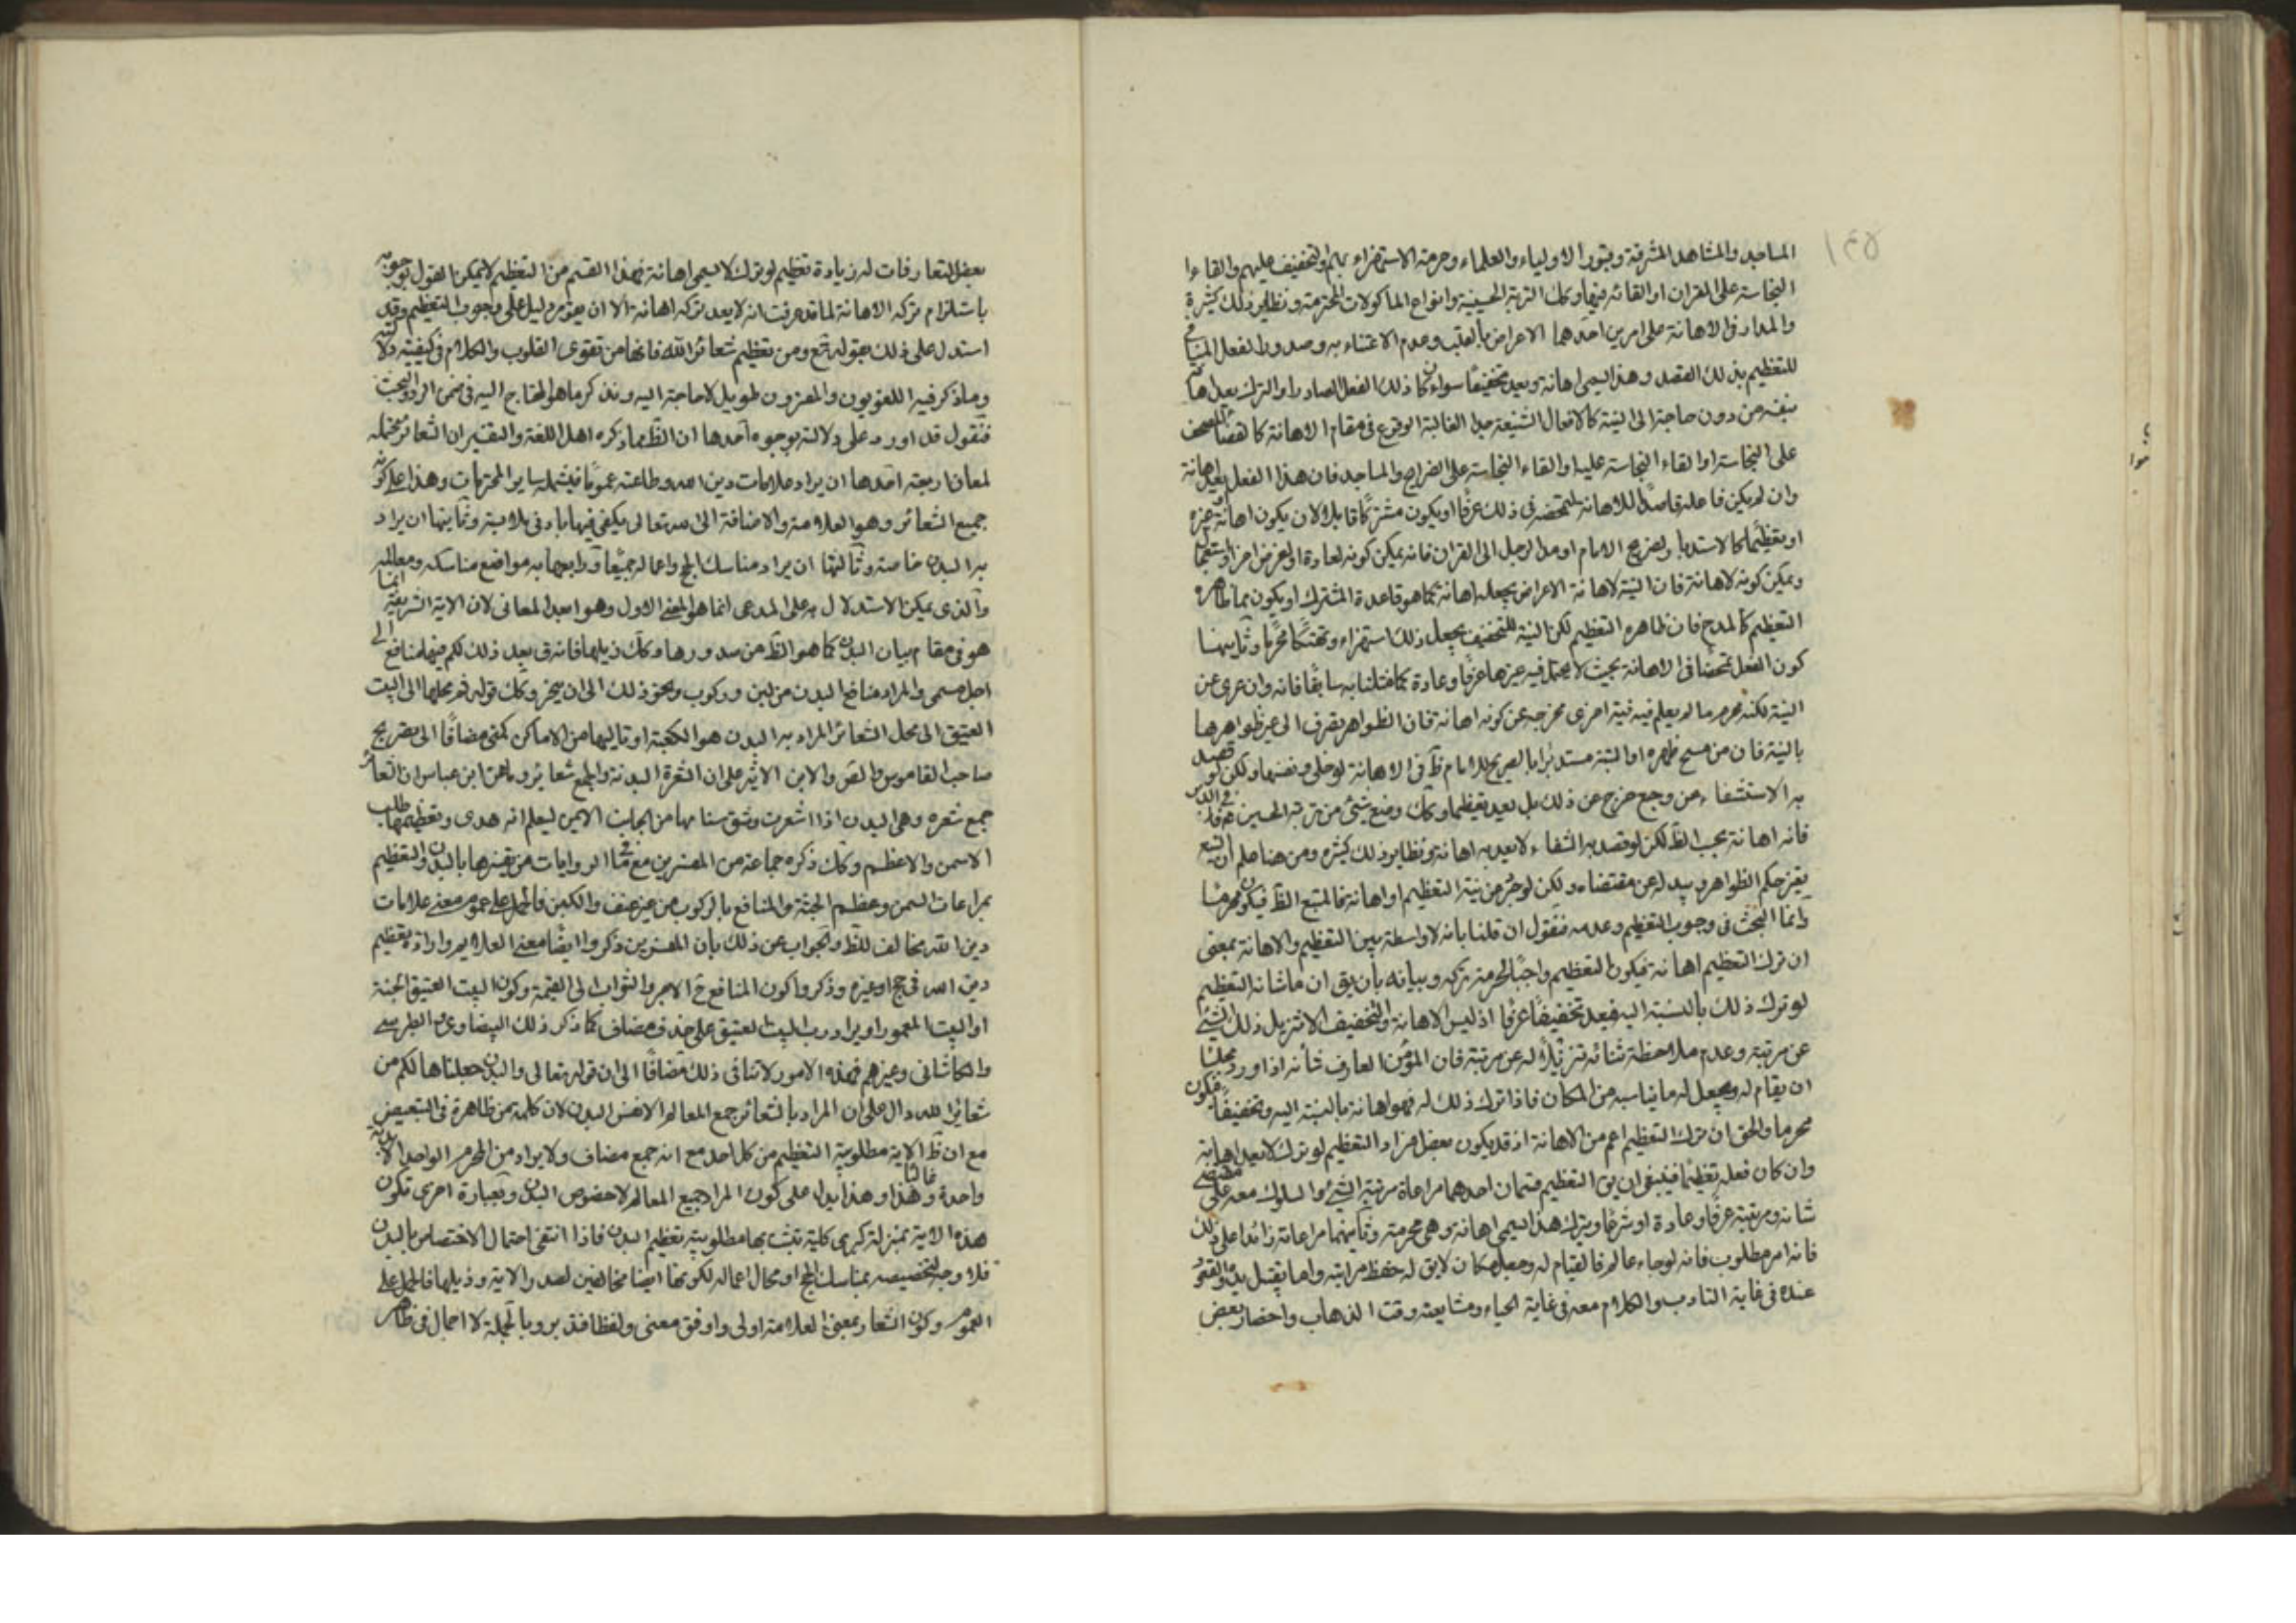 المساجد والمشاهد المشرفة وقبور الاولياء والعلماء وحرمة الاستهزاء بهم والتخفيف عليهم والقاء
النجاسة على القران او القائه فيها وكك التربة الحسينية وانواع الماكولات المحترمة ونظاير ذلك كثيرة
والمدار في الاهانة على امرين احدهما الاعراض بالقلب وعدم الاعتناء به وصدور الفعل المنافي
للتعظيم بذلك القصد وهذا يسمى اهانة ويعد تخفيفا سواء كان ذلك الفعل الصادر او الترك يعد اهانة
بنفسه من دون حاجة الى النية كالافعال الشنيعة جدا الغالبة الوقوع في مقام الاهانة كالقاء المصحف
على النجاسة او القاء النجاسة عليه او القاء النجاسة على الضرايح والمساجد فان هذا الفعل يعد اهانة
وان لم يكن فاعله قاصدا للاهانة لتمحضه في ذلك عرفا او يكون مشتركا قابلا لان يكون اهانة وغيره
او تعظيما كالاستدبار لضريح الامام او مد الرجل الى القران فانه يمكن كونه لعادة او لغرض اخر
ويمكن كونه لاهانة فان النية لاهانة الاعراض يجعله اهانة كما هو قاعدة المشترك او يكون مما ظاهره
التعظيم كالمدح فان ظاهره التعظيم لكن النية للتخفيف يجعل ذلك استهزاء وهتكا محرما وثانيهما
كون الفعل متمحضا في الاهانة بحيث لا يحتمل فيه غيرها عرفا وعادة كما مثلنا به سابقا فانه وان عرى عن
النية لكنه محرم ما لم يعلم فيه نية اخرى مخرجه عن كونه اهانة فان الظواهر يصرف الى غير ظواهرها
بالنية فان من مسح ظهره او اليته مستدبرا بالضريح للامام ظ في الاهانة لو خلى ونفسها ولكن لو قصد
به الاستشفاء من وجع خرج عن ذلك بل يعد تعظيما وكك وضع شئ من تربة الحسين ع في
فانه اهانة بحسب الظ لكن لو قصد به الشفاء لا يعد به اهانة ونظاير ذلك كثيرة ومن هنا علم ان
يغير حكم الظواهر ويبدله عن مقتضاه ولكن لو جرد عن نية التعظيم او اهانة فالمتبع الظ فيكون محرما
وانما البحث في وجوب التعظيم وعدمه فنقول ان قلنا بانه لا واسطة بين التعظيم والاهانة بمعنى
ان ترك التعظيم اهانة فيكون التعظيم واجبا لحرمة تركه وبيانه بان يق ان ما شانه التعظيم
لو ترك ذلك بالنسبة اليه فيعد تخفيفا عرفا اذ ليس الاهانة والتخفيف الا تنزيل ذلك الشئ
عن مرتبته وعدم ملاحظة شانه تنزيلا له عن مرتبته فان المؤمن العارف شانه اذا ورد مجلسا
ان يقام له ويجعل له ما يناسبه من المكان فاذا ترك ذلك له فهو اهانة بالنسبة اليه وتخفيفا فيكون
محرما والحق ان ترك التعظيم اعم من الاهانة اذ قد يكون بعض افراد التعظيم لو ترك لا يعد اهانة
وان كان فعله تعظيما فينبغي ان يق التعظيم قسمان احدهما مراعاة مرتبة الشئ والسلوك معه على مقتضى
شانه ومرتبته عرفا وعادة او شرعا ويترك هذا يسمى اهانة وهي محرمة وثانيهما مراعاته زائدا على ذلك
فانه امر مطلوب فانه لو جاء عالم فالقيام له وجعل مكان لايق له حفظ مرتبته واما تقبيل يده والقعود
عنده في غاية التادب والكلام معه في غاية الحياء ومشايعته وقت الذهاب واحضار بعض
بعض التعارفات له زيادة تعظيم لو ترك لا يسمى اهانة فهذا القسم من التعظيم لا يمكن القول بوجوبه
باستلزام تركه الاهانة لما قد عرفت انه لا يعد تركه اهانة الا ان يقوم دليل على وجوب التعظيم وقد
استدل على ذلك بقوله تع ومن يعظم شعائر الله فانها من تقوى القلوب والكلام في كيفية دلالته
وما ذكر فيه اللغويون والمفسرون طويل لا حاجة اليه ونذكر ما هو المحتاج اليه في ضمن الرد والبحث
فنقول قد اورد على دلالته بوجوه احدها ان الظ مما ذكره اهل اللغة والتفسير ان الشعائر محتملة
لمعان اربعة احدها ان يراد علامات دين الله وطاعته عموما فيشمله ساير المحترمات وهذا على كونه
جميع الشعائر وهو العلامة والاضافة الى الله تعالى يكفي فيها بادنى ملابسة وثانيها ان يراد
به البدن خاصة وثالثها ان يراد مناسك الحج واعماله جميعا ورابعها به مواضع مناسكه ومعالمه
والذي يمكن الاستدلال به على المدعى انما هو المعنى الاول وهو ابعد المعاني لان الاية الشريفة انما
هو في مقام بيان البدن كما هو الظ من صدورها وكك ذيلها فانه ق بعد ذلك لكم فيها منافع الى
اجل مسمى والمراد منافع البدن من لبن وركوب ونحو ذلك الى ان ينحر وكك قوله ثم محلها الى البيت
العتيق الى محل الشعائر المراد به البدن هو الكعبة او ما يليها من الاماكن كمنى مضافا الى تصريح
صاحب القاموس والابن الاثير على ان الشعيرة البدنة والجمع شعائر وما عن ابن عباس ان الشعائر
جمع شعيرة وهي البدن اذا اشعرت وشق سنامها من الجانب الايمن ليعلم انه هدى وتعظيمها طلب
الاسمن والاعظم وكك ذكره جماعة من المفسرين مع ما في الروايات من تفسيرها بالبدن والتعظيم
بمراعات السمن وعظم الجثة والمنافع بالركوب من غير عنف والكعبة فالحمل على عموم معنى علامات
دين الله مخالف للظ والجواب عن ذلك بان المفسرين ذكروا ايضا معنى العلايم وارادة تعظيم
دين الله في حج او غيره وذكروا كون المنافع ح الاجر والثواب الى القيمة وكون البيت العتيق الجنة
او البيت المعمور او يراد رب البيت العتيق على حذف مضاف كما ذكر ذلك البيضاوي والطبرسي
والكاشاني وغيرهم فهذه الامور لا تنافي ذلك مضافا الى ان قوله تعالى والبدن جعلناها لكم من
شعائر الله دال على ان المراد بالشعائر جمع المعالم لا نفس البدن لان كلمة من ظاهرة في التبعيض
مع ان ظ الاية مطلوبية التعظيم من كل احد مع انه جمع مضاف ولا يراد من المحرم الواحد الا بدنة
واحدة غالبا وهذا وهذا يدل على كون المراد جميع المعالم لا خصوص البدن وبعبارة اخرى تكون
هذه الاية بمنزلة كبرى كلية تثبت بها مطلوبية تعظيم البدن فاذا انتفى احتمال الاختصاص بالبدن
فلا وجه لتخصيصه بمناسك الحج او محال اعماله لكونهما ايضا مخالفين لصدر الاية وذيلها فالحمل على
العموم وكون الشعائر بمعنى العلامة اولى واوفق معنى ولفظا فتدبر وبالجملة لا اجمال في ظاهر